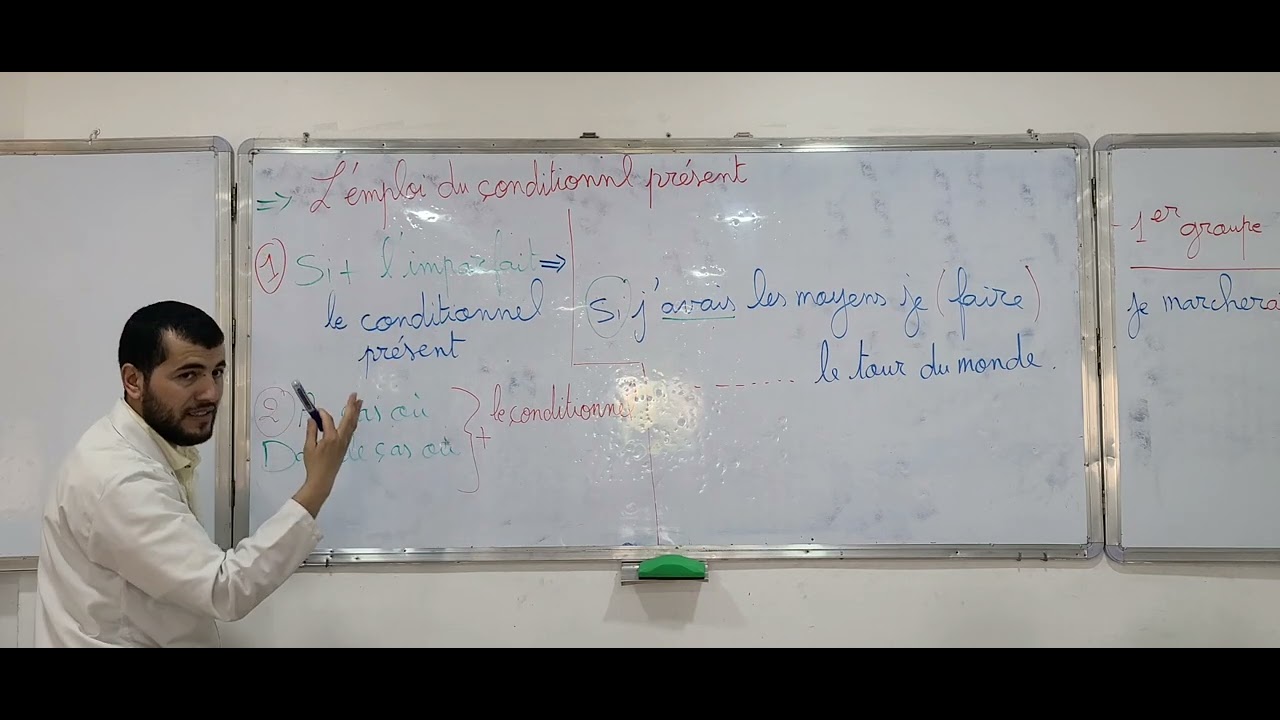 ⇒ L'émploi du çonditionnl présent
① Si + l'imparfait ⇒
le conditionnel
présent
Si j'avais les moyens je (faire)
- - - - - - le tour du monde.
② où } + le conditionnel
ças où
- 1er groupe
je marchera